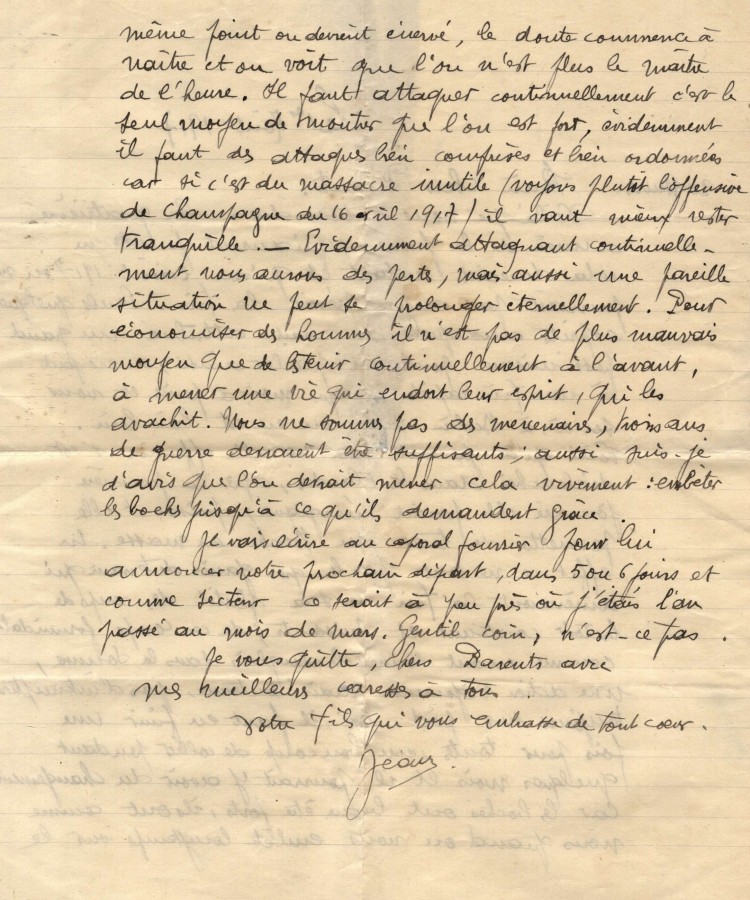 même point on devient énervé, le doute commence à
naître et on voit que l'on n'est plus le maître
de l'heure. Il faut attaquer continuellement c'est le
seul moyen de montrer que l'on est fort, évidemment
il faut des attaques bien comprises et bien ordonnées
car si c'est du massacre inutile (voyons plutôt l'offensive
de Champagne du 16 avril 1917) il vaut mieux rester
tranquille. — Evidemment attaquant continuelle-
ment nous aurons des pertes, mais aussi une pareille
situation ne peut se prolonger éternellement. Pour
économiser des hommes il n'est pas de plus mauvais
moyen que de les tenir continuellement à l'avant,
à mener une vie qui endort leur esprit, qui les
avachit. Nous ne sommes pas des mercenaires, trois ans
de guerre devraient être suffisants; aussi suis-je
d'avis que l'on devrait mener cela vivement : embêter
les boches jusqu'à ce qu'ils demandent grâce.
Je vais écrire au caporal fourrier pour lui
annoncer notre prochain départ, dans 5 ou 6 jours et
comme secteur ce serait à peu près où j'étais l'an
passé au mois de mars. Gentil coin, n'est-ce pas.
Je vous quitte, chers Parents avec
mes meilleures caresses à tous.
Votre fils qui vous embrasse de tout coeur.
Jean.